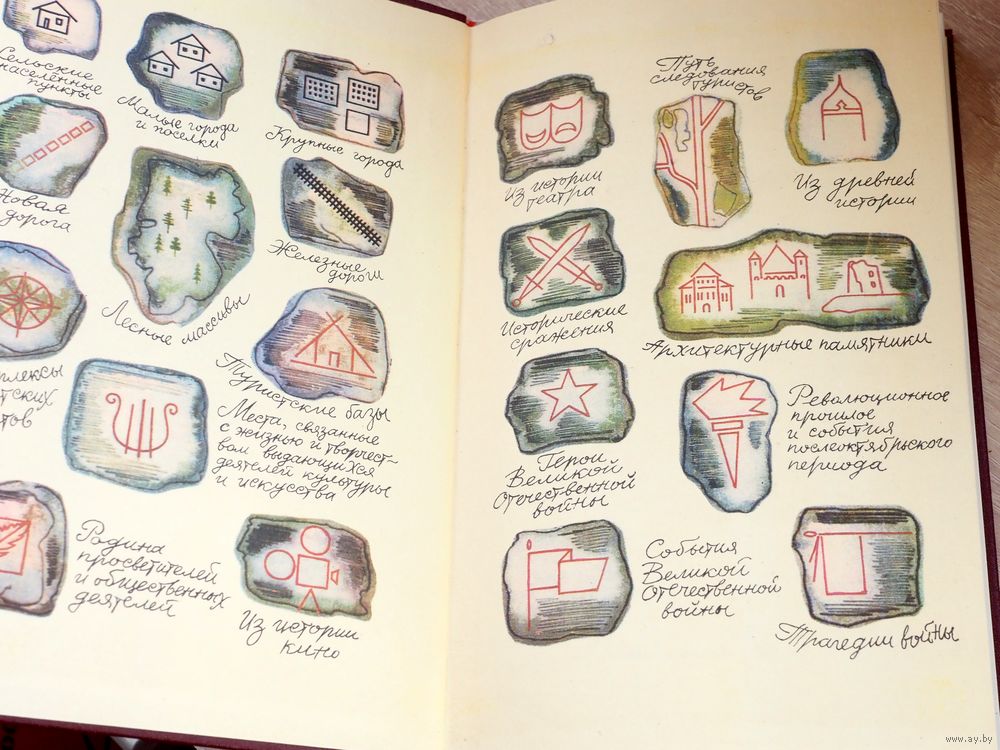 Сельские
населённые
пункты
Малые города
и поселки
Крупные города
Новая
дорога
Лесные массивы
Железные
дороги
Туристские базы
Места, связанные
с жизнью и творчест-
вом выдающихся
деятелей культуры
и искусства
Родина
просветителей
и общественных
деятелей
Из истории
кино
Из истории
театра
Путь
следования
туристов
Из древней
истории
Исторические
сражения
Архитектурные памятники
Герои
Великой
Отечественной
войны
Революционное
прошлое
и события
послеоктябрьского
периода
События
Великой
Отечественной
войны
Трагедии войны
www.ay.by